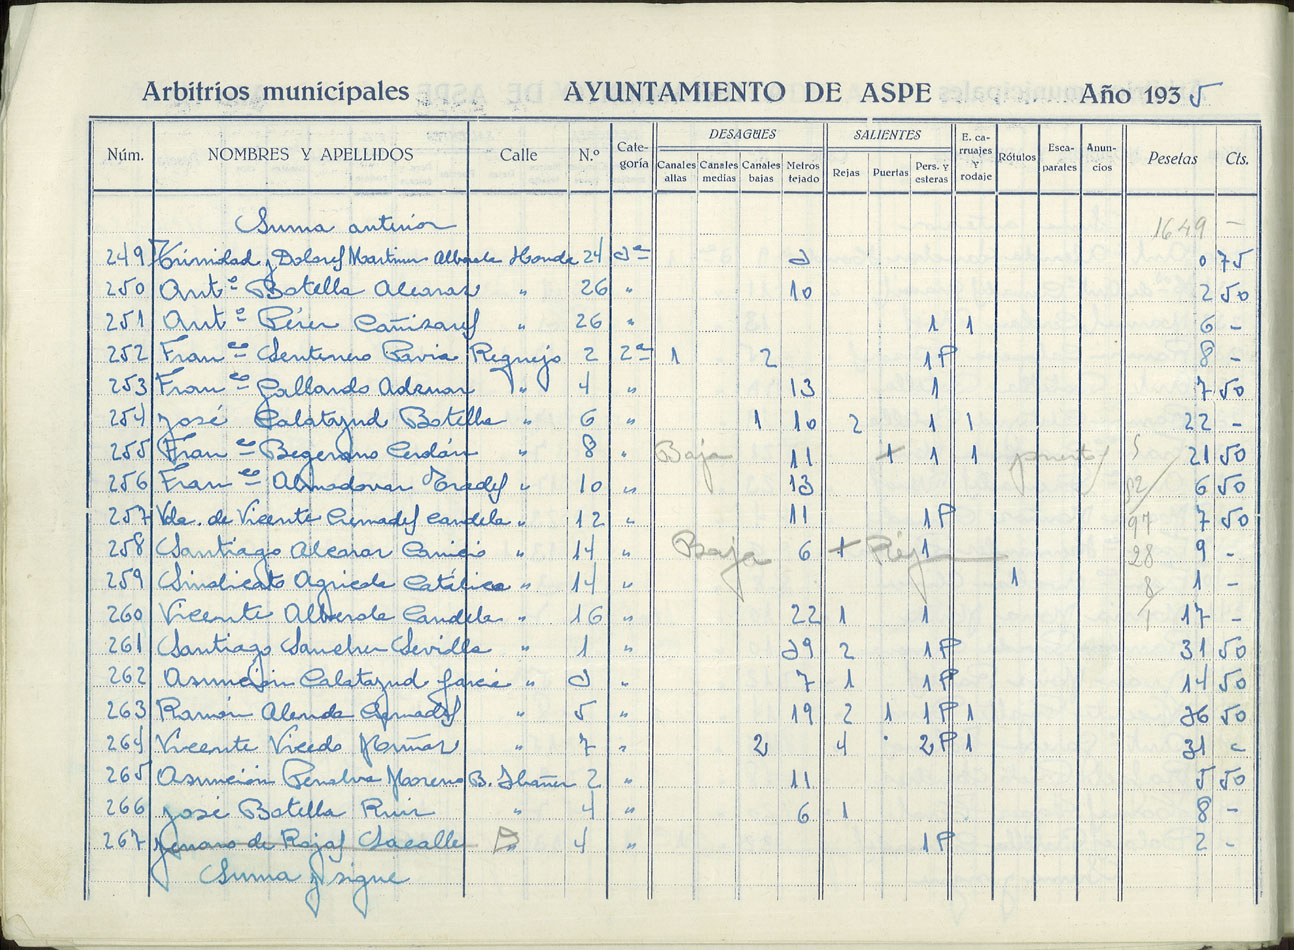 Arbitrios municipales AYUNTAMIENTO DE ASPE Año 1935
DESAGÜES SALIENTES
Núm. NOMBRES Y APELLIDOS Calle N.º Categoría Canales altas Canales medias Canales bajas Metros tejado Rejas Puertas Pers. y esteras E. carruajes Y rodaje Rótulos Escaparates Anuncios Pesetas Cts.
Suma anterior 1649 -
249 Trinidad y Dolores Martinez Alberola Honda 24 2ª 2 0 75
250 Antº Botella Alcaraz " 26 " 10 2 50
251 Antº Pérez Cañizares " 26 " 1 1 6 -
252 Franco Sentenero Pavia Reguejo 2 2ª 1 2 1P 8 -
253 Franco Gallardo " 4 " 13 1 7 50
254 José Calatayud Botella " 6 " 1 10 2 1 1 22 -
255 Franco Begerano Cerdán " 8 " Baja 11 + 1 1 5 21 50
256 Franco Almodovar Prades " 10 " 13 92/ 6 50
257 Vda. de Vicente Cremades Candela " 12 " 11 1P 97 7 50
258 Santiago Alcaraz " 14 " Baja 6 + 1 28 9 -
259 Sindicato Agricola Católico " 14 " 1 1 -
260 Vicente Alberola Candela " 16 " 22 1 1 17 -
261 Santiago Sanchez Sevilla " 1 " 29 2 1P 31 50
262 Asunción Calatayud Garcia " 3 " 7 1 1P 14 50
263 Ramón Alenda Cremades " 5 " 19 2 1 1P 1 36 50
264 Vicente Vicedo " 7 " 2 4 2P 1 31 -
265 Asunción Penalva Moreno B. Ibáñez 2 " 11 5 50
266 José Botella Ruiz " 4 " 6 1 8 -
267 Jenaro de Rojas " 4 " 1P 2 -
Suma y sigue